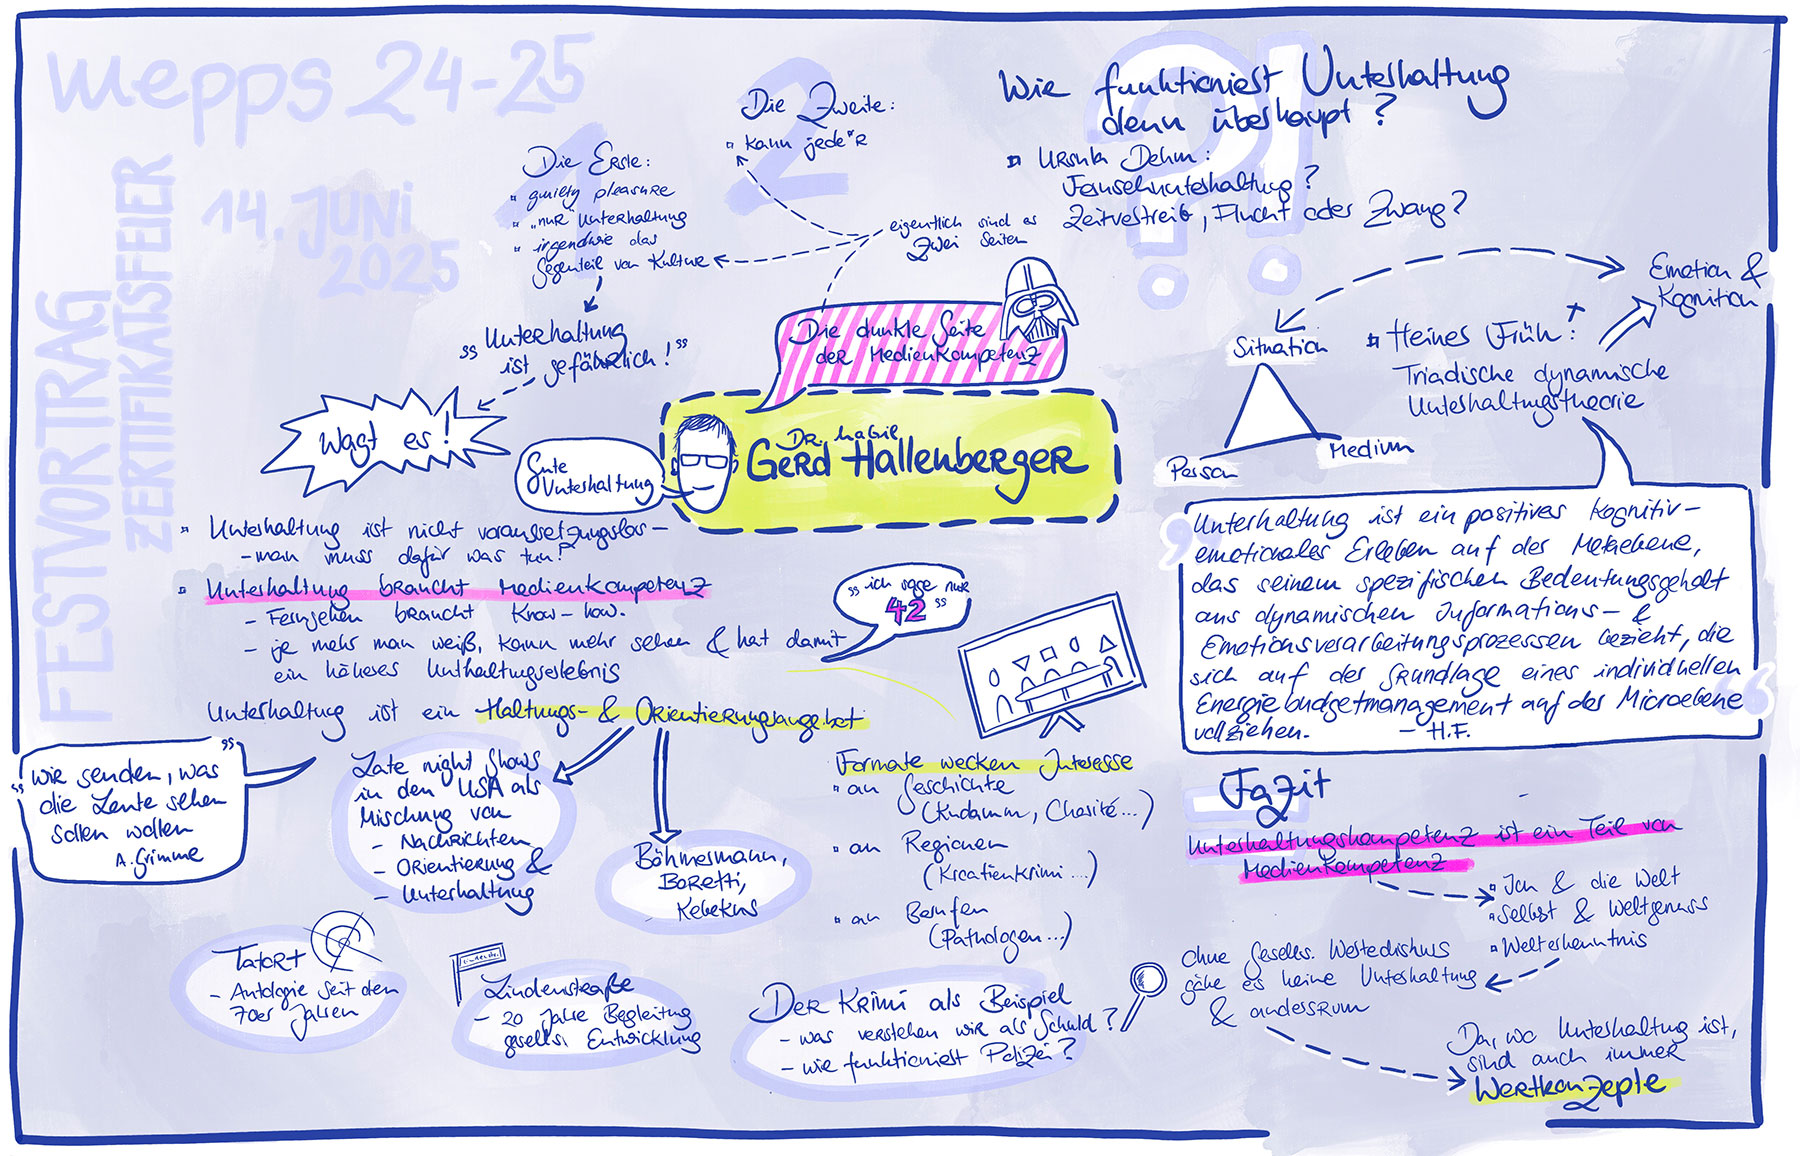 mepps 24-25
FESTVORTRAG
ZERTIFIKATSFEIER
14. JUNI
2025
Die dunkle Seite
der Medienkompetenz
Dr. habil
Gerd Hallenberger
Gute
Unterhaltung
eigentlich sind es
zwei Seiten
1
Die Erste:
guilty pleasure
"nur" Unterhaltung
irgendwie das
Gegenteil von Kultur
"Unterhaltung
ist gefährlich!"
Wagt es!
2
Die Zweite:
kann jede*r
Unterhaltung ist nicht voraussetzungslos -
- man muss dafür was tun?
Unterhaltung braucht Medienkompetenz
- Fernsehen braucht Know-how.
- je mehr man weiß, kann mehr sehen & hat damit
ein höheres Unthaltungserlebnis
"ich sage nur
42"
Unterhaltung ist ein Haltungs- & Orientierungsangebot
"Wir senden, was
die Leute sehen
sollen wollen"
A. Grimme
Late night Shows
in den USA als
Mischung von
- Nachrichten
- Orientierung &
- Unterhaltung
Böhmermann,
Boretti,
Kebekus
Tatort
- Antologie seit den
70er Jahren
Lindenstr.
Lindenstraße
- 20 Jahre Begleitung
gesells. Entwicklung
Formate wecken Interesse
an Geschichte
(Kudamm, Charité...)
an Regionen
(Kroatienkrimi...)
an Berufen
(Pathologen...)
Der Krimi als Beispiel
- was verstehen wir als Schuld?
- wie funktioniert Polizei?
?!
Wie funktioniert Unterhaltung
denn überhaupt?
Ursula Dehm:
Fernsehunterhaltung?
Zeitvertreib, Flucht oder Zwang?
Emotion &
Kognition
Situation
Person
Medium
Heines Früh:
Triadische dynamische
Unterhaltungstheorie
"Unterhaltung ist ein positives kognitiv-
emotionales Erleben auf der Metaebene,
das seinem spezifischen Bedeutungsgehalt
aus dynamischen Informations- &
Emotionsverarbeitungsprozessen bezieht, die
sich auf der Grundlage eines individuellen
Energiebudgetmanagement auf der Microebene
vollziehen." - H.F.
Fazit
Unterhaltungskompetenz ist ein Teil von
Medienkompetenz
Ich & die Welt
Selbst & Weltgenuss
Welterkenntnis
ohne Gesells. Wertediskurs
gäbe es keine Unterhaltung
& andersrum
Da, wo Unterhaltung ist,
sind auch immer
Wertkonzepte